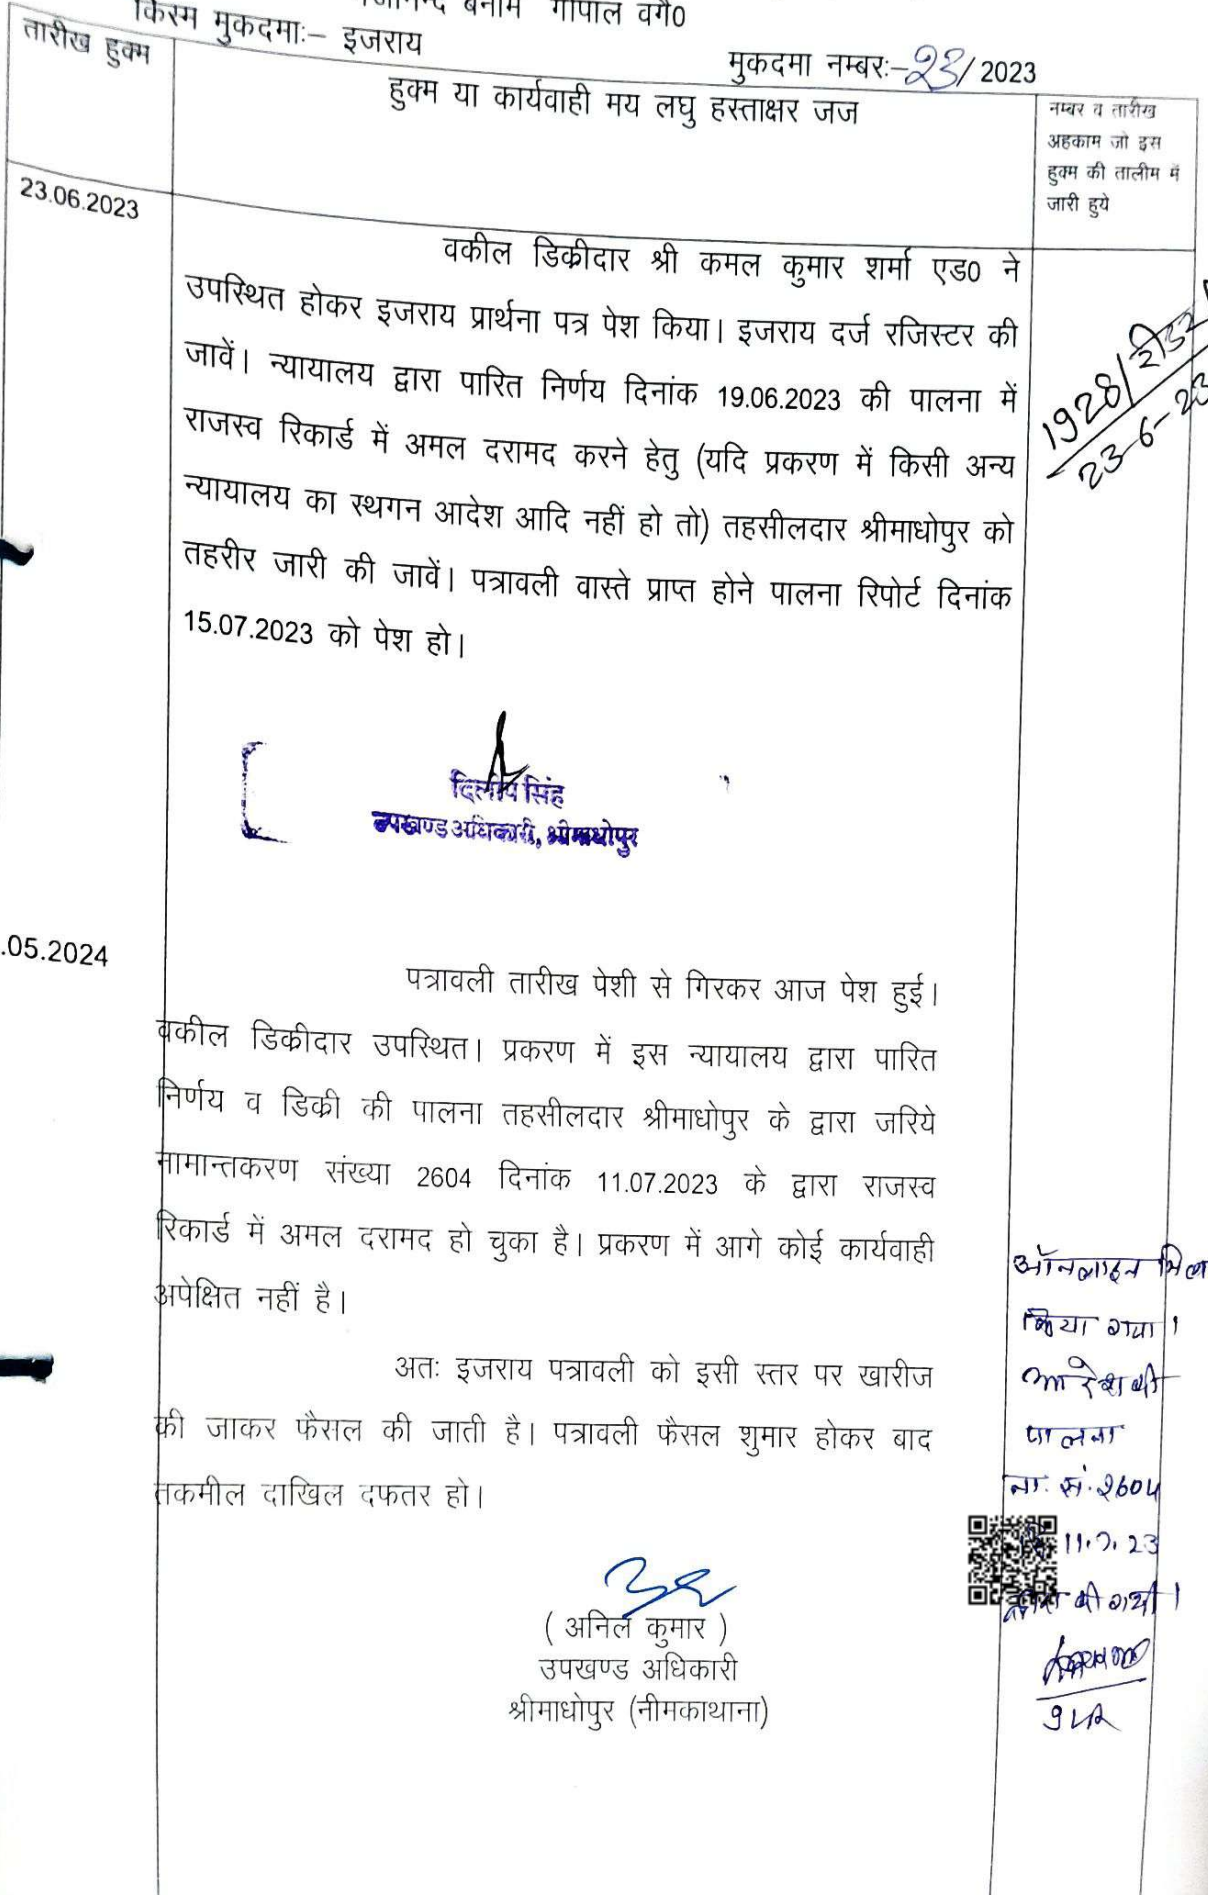 बनाम गोपाल वगै0
किस्म मुकदमाः– इजराय
मुकदमा नम्बरः–23/2023
तारीख हुक्म
हुक्म या कार्यवाही मय लघु हस्ताक्षर जज
नम्बर व तारीख
अहकाम जो इस
हुक्म की तालीम में
जारी हुये
23.06.2023
वकील डिक्रीदार श्री कमल कुमार शर्मा एड0 ने
उपस्थित होकर इजराय प्रार्थना पत्र पेश किया। इजराय दर्ज रजिस्टर की
जावें। न्यायालय द्वारा पारित निर्णय दिनांक 19.06.2023 की पालना में
राजस्व रिकार्ड में अमल दरामद करने हेतु (यदि प्रकरण में किसी अन्य
न्यायालय का स्थगन आदेश आदि नहीं हो तो) तहसीलदार श्रीमाधोपुर को
तहरीर जारी की जावें। पत्रावली वास्ते प्राप्त होने पालना रिपोर्ट दिनांक
15.07.2023 को पेश हो।
1928/
23-6-23
दिलीप सिंह
उपखण्ड अधिकारी, श्रीमाधोपुर
.05.2024
पत्रावली तारीख पेशी से गिरकर आज पेश हुई।
वकील डिक्रीदार उपस्थित। प्रकरण में इस न्यायालय द्वारा पारित
निर्णय व डिक्री की पालना तहसीलदार श्रीमाधोपुर के द्वारा जरिये
नामान्तकरण संख्या 2604 दिनांक 11.07.2023 के द्वारा राजस्व
रिकार्ड में अमल दरामद हो चुका है। प्रकरण में आगे कोई कार्यवाही
अपेक्षित नहीं है।
अतः इजराय पत्रावली को इसी स्तर पर खारीज
की जाकर फैसल की जाती है। पत्रावली फैसल शुमार होकर बाद
तकमील दाखिल दफतर हो।
ऑनलाइन
किया गया।
आदेश की
पालना
ना. सं. 2604
11.7.23
की गयी।
( अनिल कुमार )
उपखण्ड अधिकारी
श्रीमाधोपुर (नीमकाथाना)